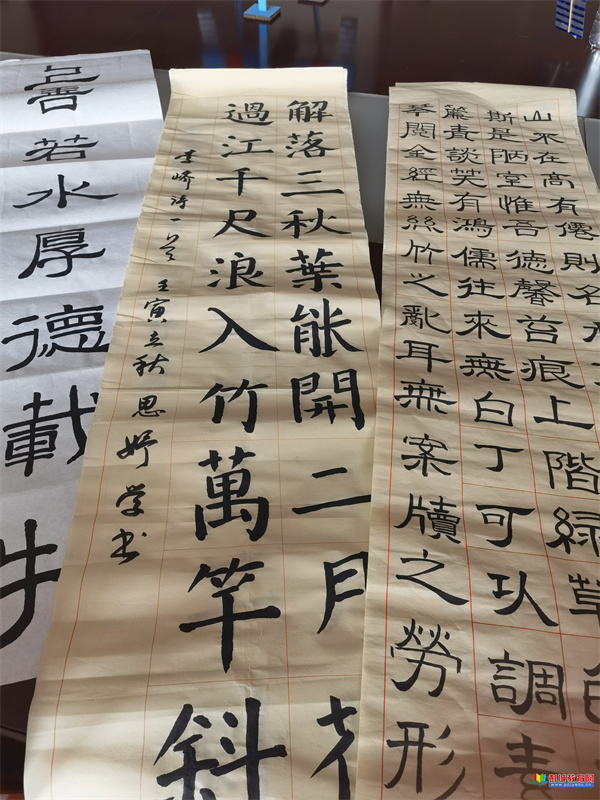 山不在高有僊則名
斯是陋室惟吾德馨苔痕上階緑草色
簾青談笑有鴻儒往來無白丁可以調素
琴閱金經無絲竹之亂耳無案牘之勞形
解落三秋葉能開二月花
過江千尺浪入竹萬竿斜
李嶠詩一首 壬寅立秋 思妤学书
善若水厚德載